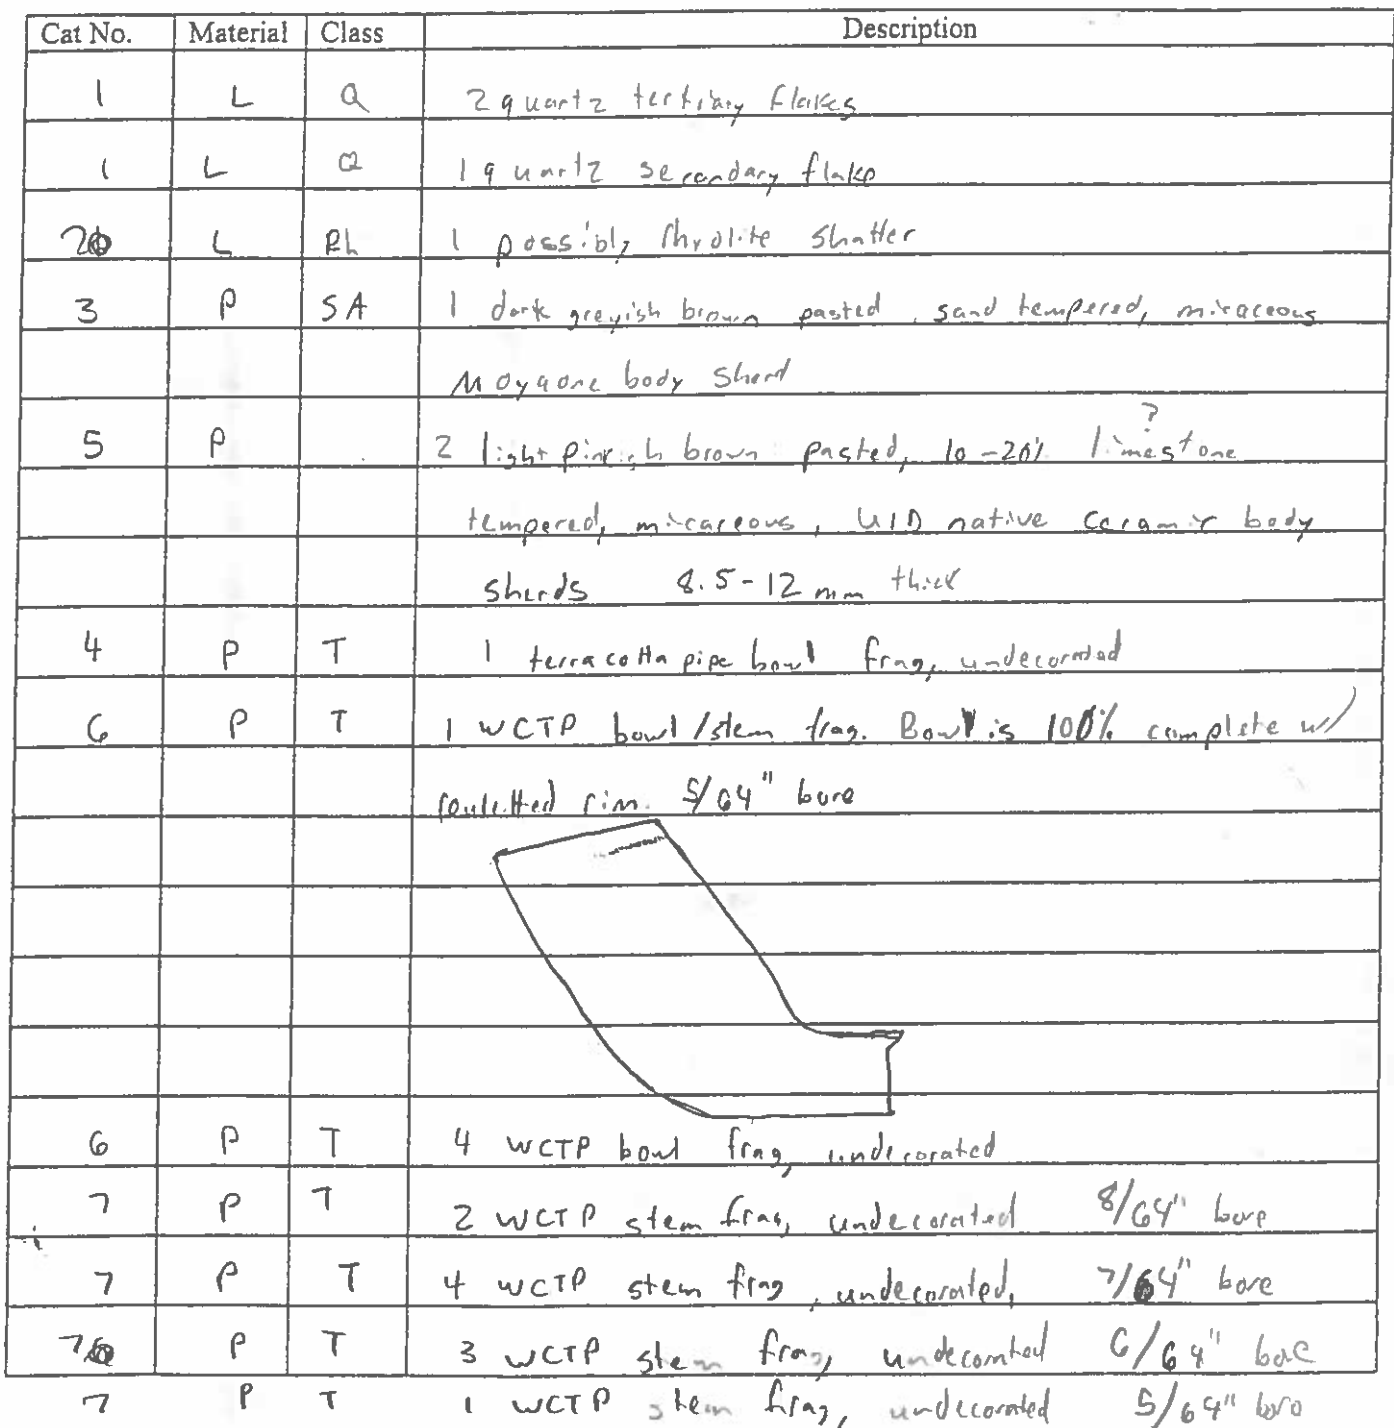 Cat No. Material Class Description
1 L Q 2 quartz tertiary flakes
1 L Q 1 quartz secondary flake
2 L Rh 1 possibly rhyolite shatter
3 P SA 1 dark greyish brown pasted, sand tempered, micaceous
Moyaone body sherd
?
5 P 2 light pinkish brown pasted, 10-20% limestone
tempered, micaceous, UID native ceramic body
sherds 8.5-12 mm thick
4 P T 1 terracotta pipe bowl frag, undecorated
6 P T 1 WCTP bowl/stem frag. Bowl is 100% complete w/
rouletted rim. 5/64" bore
6 P T 4 WCTP bowl frag, undecorated
7 P T 2 WCTP stem frag, undecorated 8/64" bore
7 P T 4 WCTP stem frag, undecorated, 7/64" bore
7 P T 3 WCTP stem frag, undecorated 6/64" bore
7 P T 1 WCTP stem frag, undecorated 5/64" bore